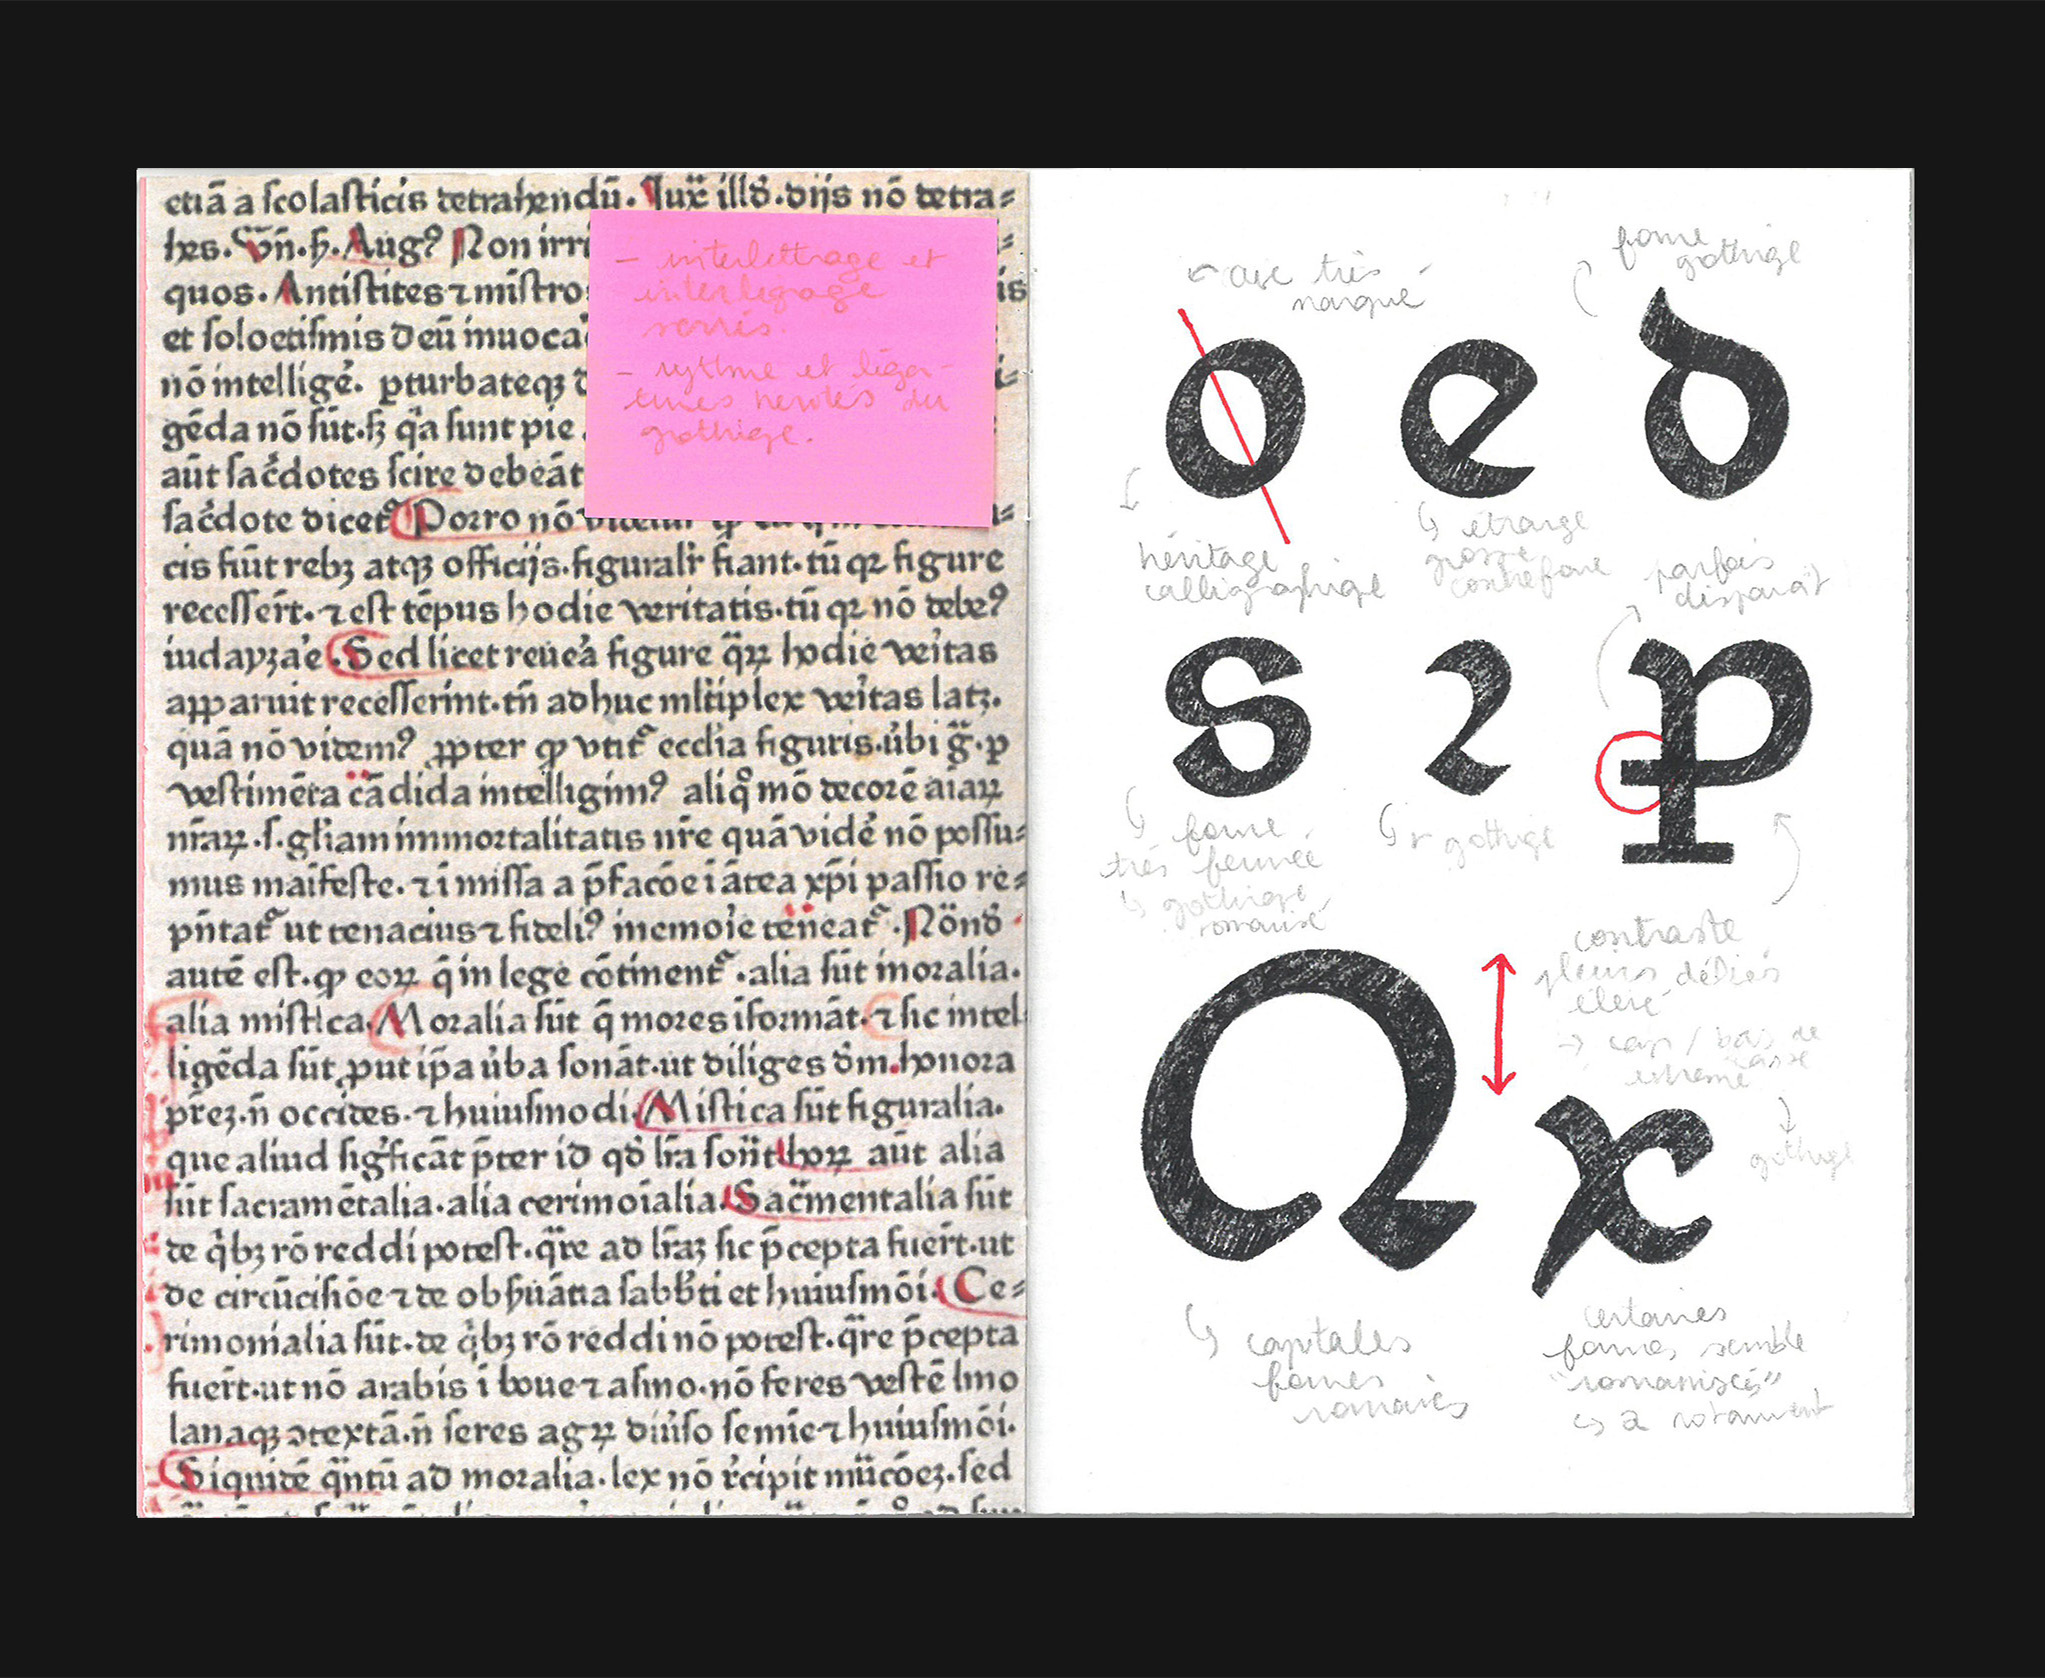 etiā a ſcolaſticis detrahendū. Iux̄ illd̄. dijs nō detra⸗
hes. Vn̄. h̄. Aug? Non irri
quos. Antiſtites ⁊ miſtro
et ſoloeciſmis deū inuoca
nō intelligē. pturbateqꝫ
gēda nō ſūt. ſꝫ q̄a ſunt pie
aūt ſac̄dotes ſcire debeāt
ſac̄dote dicet᷑ Porro nō
cis ſiūt rebꝫ atqꝫ officijs. figuralr̄ fiant. tū qꝛ figure
receſſer̄t. ⁊ eſt tēpus hodie veritatis. tū qꝛ nō debe?
iudayzāe. Sed licet reuēa figure q̄ꝝ hodie veītas
apparuit receſſerint. tn̄ adhuc mltīplex veītas latꝫ.
quā nō videm? ꝓpter ꝙ vtit᷑ ecclīa figuris. ub̄i ḡ. p
veſtimēta cādida intelligim? aliq̄ mō decorē aīaꝝ
nr̄aꝝ. ſ. gl̄iam immortalitatis nr̄e quā vidē nō poſſu⸗
mus maīfeſte. ⁊ ī miſſa a p̄facōe ī ātea xp̄i paſſio re⸗
pn̄tat᷑ ut tenacius ⁊ fideli? ī memoīe tēneat᷑. Nōnd̄
autē eſt. ꝙ eoꝝ q̄ in lege cōtinent᷑. alia ſūt moralia.
alia miſtica. Moralia ſūt q̄ mores īformāt. ⁊ ſic intel
ligēda ſūt ꝓut ip̄a ūba ſonāt. ut diliges dōm. honora
pr̄eꝫ. n̄ occides. ⁊ huiuſmodi. Miſtica ſūt figuralia.
que aliud ſigīficāt p̄ter id qd̄ lr̄a ſonīt hoꝝ aūt alia
ſūt ſacramētalia. alia cerimoīalia. Sac̄mentalia ſūt
de q̄bꝫ rō reddi poteſt. q̄re ad lr̄aꝫ ſic p̄cepta fuer̄t. ut
de circūciſiōe ⁊ de obẜuātia ſabb̄ti et huiuſmōi. Ce⸗
rimonialia ſūt. de q̄bꝫ rō reddi nō poteſt. q̄re p̄cepta
fuer̄t. ut nō arabis ī boue ⁊ aſino. nō feres veſtē lino
lanaqꝫ ↄtextā. n̄ ſeres agꝝ diūſo ſemīe ⁊ huiuſmōi.
Siquidē q̄ntū ad moralia. lex nō r̄cipit mūcōeꝫ. ſed
– interlettrage et
interlignage
serrés.
– rythme et liga-
tures hérités du
gothique.
axe très
marqué
forme
gothique
o e d
héritage
calligraphique
étrange
grosse
contreforme
parfois
disparaît
s ꝛ p
forme
très fermée
gothique
romanisé
r gothique
contraste
pleins déliés
élevé
→ cap / bas de
casse
extrême
gothique
Ω x
capitales
formes
romaines
certaines
formes semble
"romanisées"
a notamment